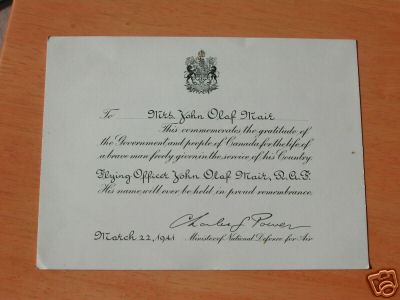 To Mrs. John Olaf Mair
This commemorates the gratitude of
the Government and people of Canada for the life of
a brave man freely given in the service of his Country.
Flying Officer John Olaf Mair, R.A.F.
His name will ever be held in proud remembrance.
Charles G Power
March 22, 1941 Minister of National Defence for Air